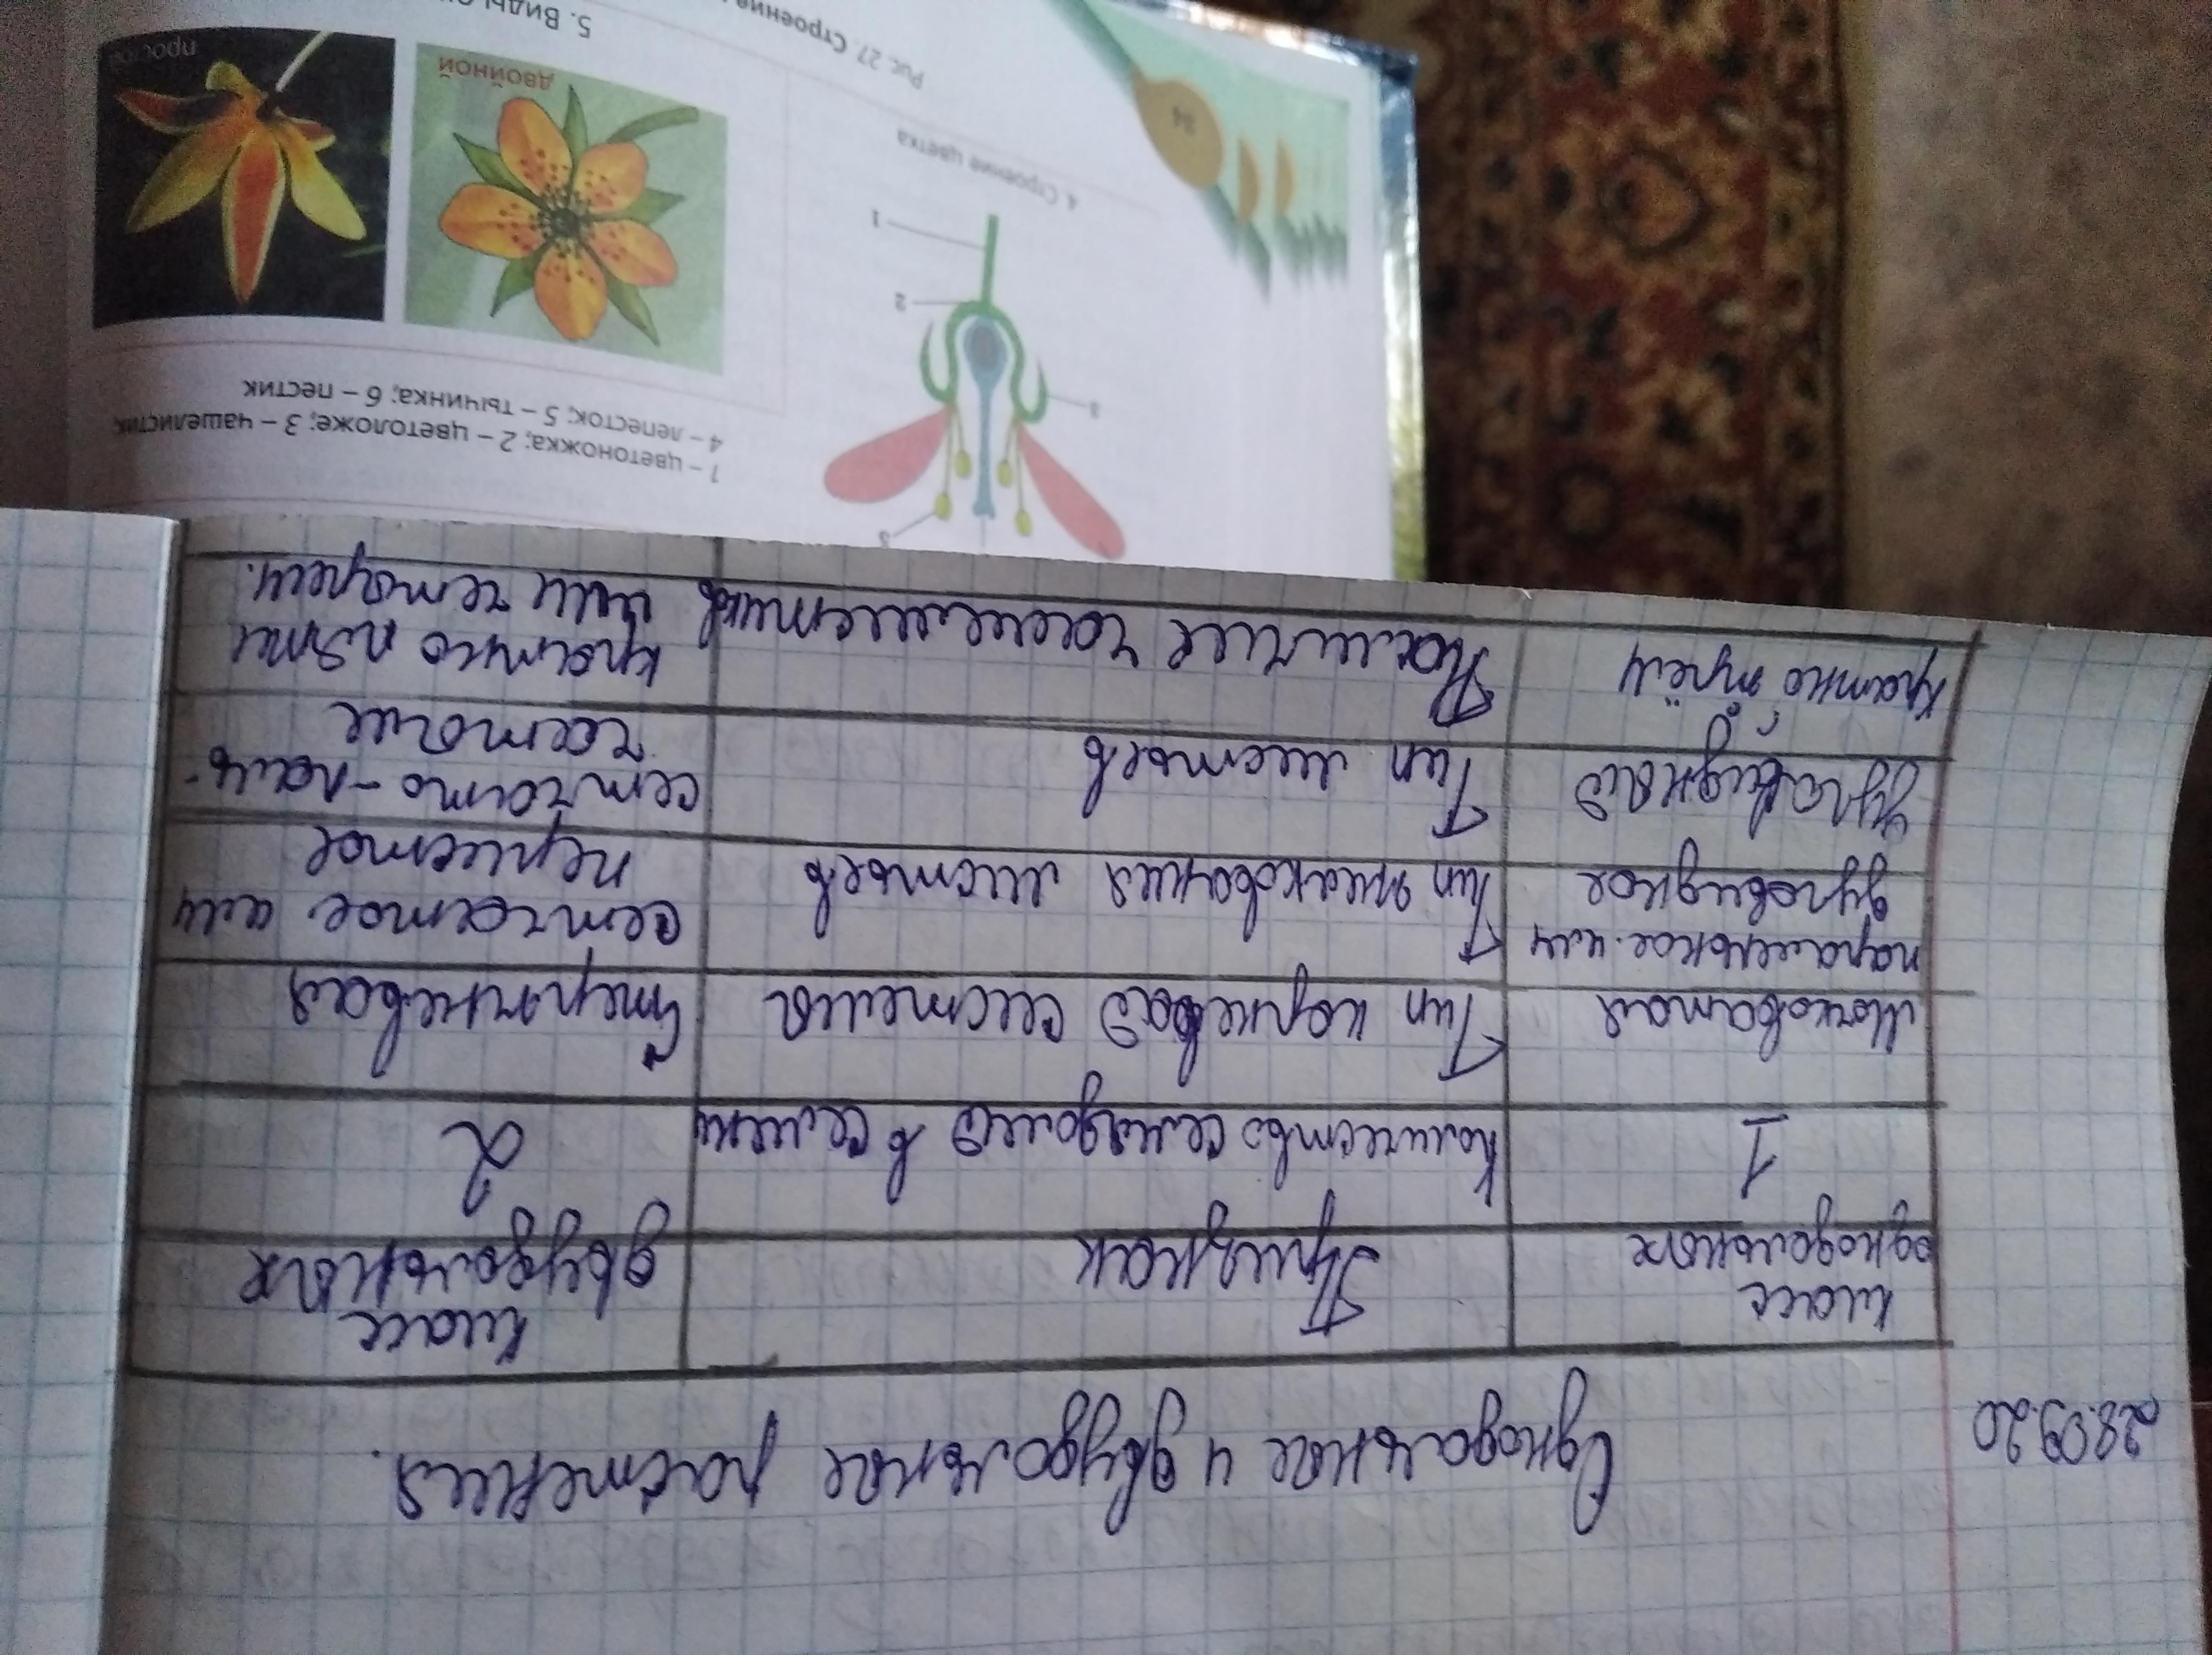 28.09.20
Однодольные и двудольные растения.
класс
однодольные
Признак
Класс
двудольные
1
Количество семядолей в семени
2
Мочковатая
Тип корневой системы
Стержневая
паралельное или
дуговидное
Тип жилкования листьев
сетчатое или
перистое
Тип листьев
сетчато-
кратно трём
Наличие чашелистиков
кратно пяти
или четырём.
1 – цветоножка; 2 – цветоложе; 3 – чашелистик;
4 – лепесток; 5 – тычинка; 6 – пестик
5
3
2
1
4. Строение цветка
двойной
простой
5. Виды
34
Рис. 27. Строение